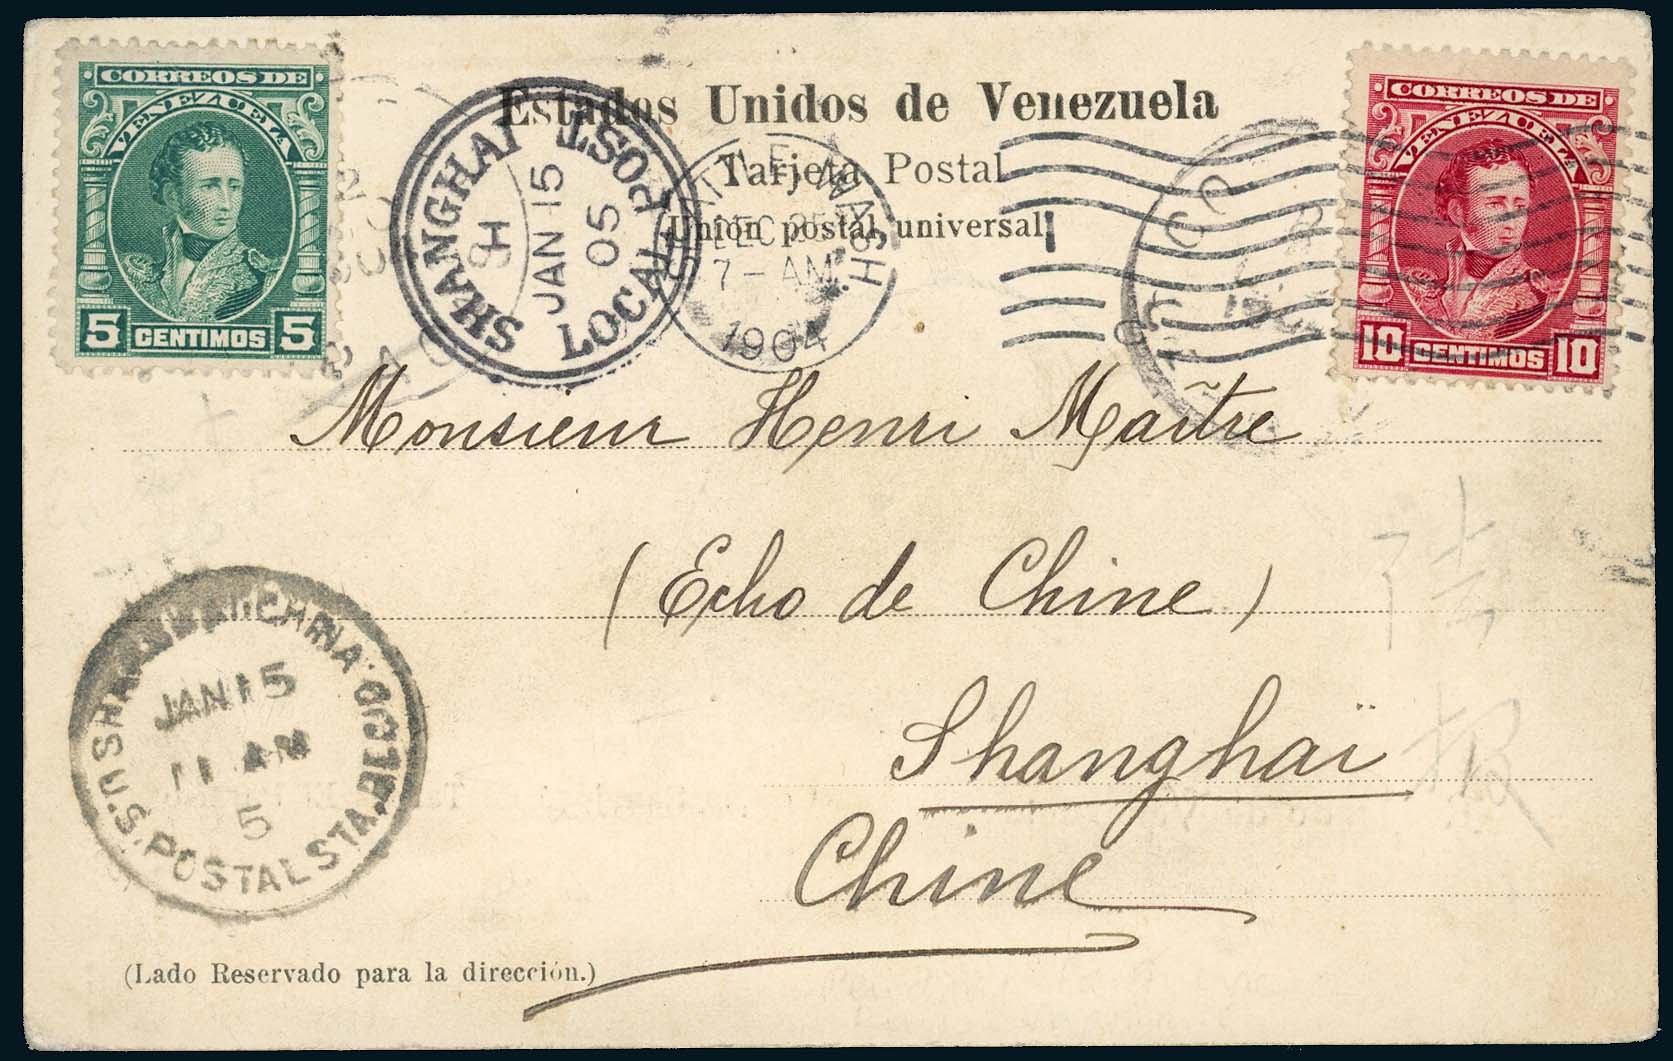 CORREOS DE
VENEZUELA
5 CENTIMOS 5
SHANGHAI
LOCAL POST
SH
JAN 15
05
Estados Unidos de Venezuela
Tarjeta Postal
(Unión postal universal)
SEATTLE, WASH.
DEC 25
7-AM
1904
CORREOS DE
VENEZUELA
10 CENTIMOS 10
Monsieur Henri Maître
(Echo de Chine)
Shanghaï
Chine
SHANGHAI, CHINA
U.S. POSTAL STA.
JAN 15
11 AM
5
(Lado Reservado para la dirección.)